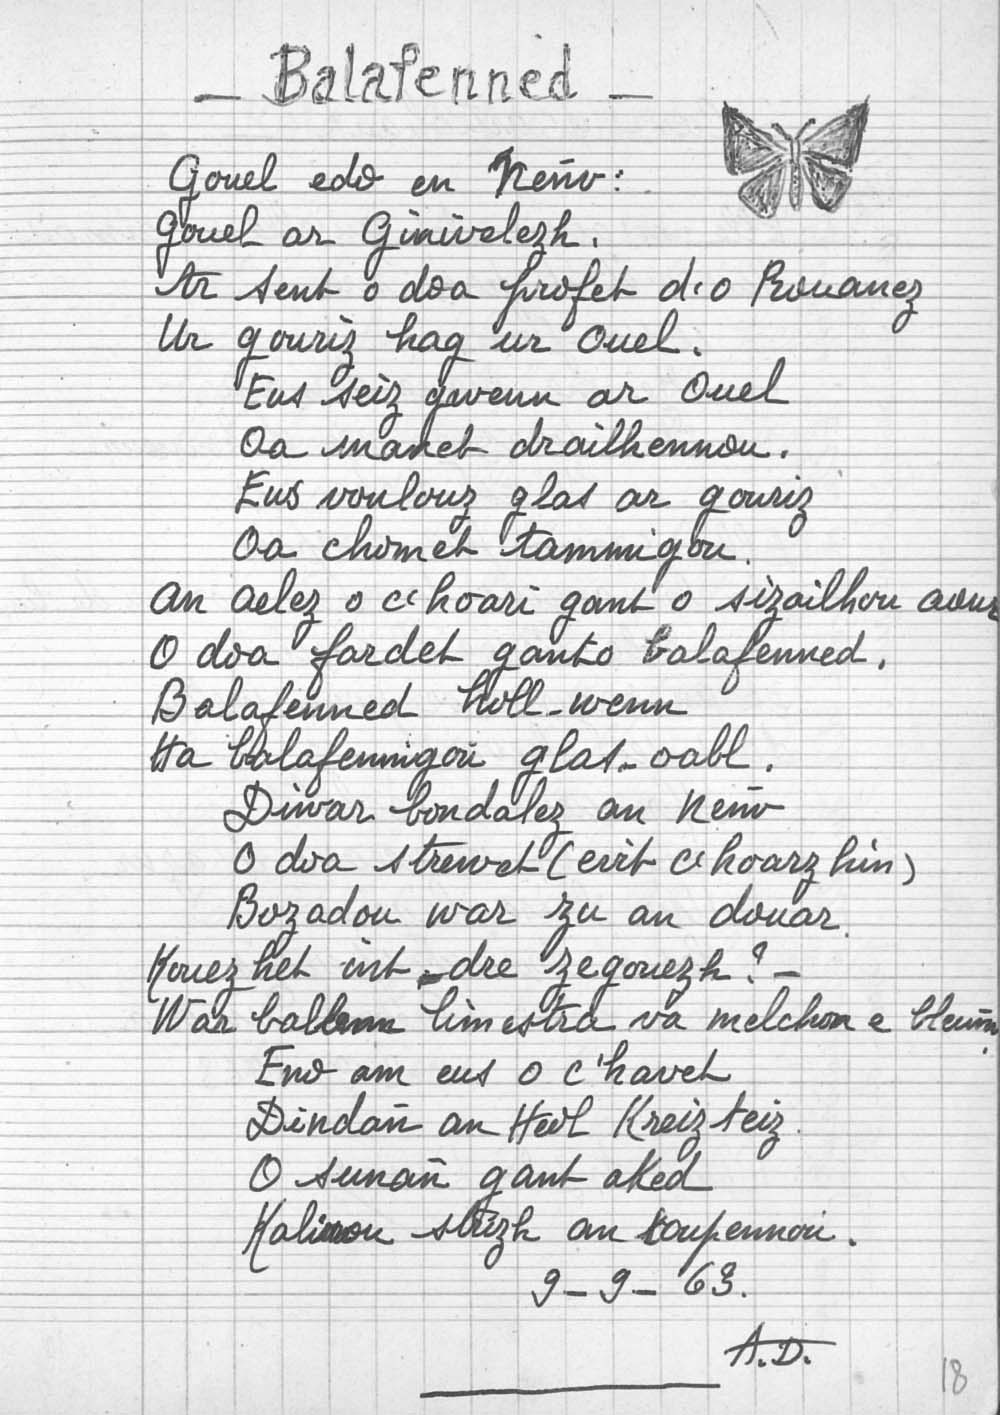 _ Balafenned _
Gouel edo en Neñv:
Gouel ar Ginivelezh.
Ar sent o doa profet d'o Rouanez
Ur gouriz hag ur ouel.
Eus seiz gwenn ar Ouel
Oa manet drailhennou.
Eus voulouz glas ar gouriz
Oa chomet tammigou.
An aelez o c'hoari gant o sizailhou aour
O doa fardet ganto balafenned,
Balafenned holl-wenn
Ha balafennigoù glas-oabl.
Diwar bondalez an neñv
O doa strewet (evit c'hoarzhin)
Bozadou war zu an douar.
Kouezhet int dre zegouezh? _
War ballenn limestra va melchon e bleuñv.
Eno am eus o c'havet
Dindañ an Heol Kreizteiz.
O sunañ gant aked
Kalinou strizh an toupennoù.
9_9_63.
A.D.
18